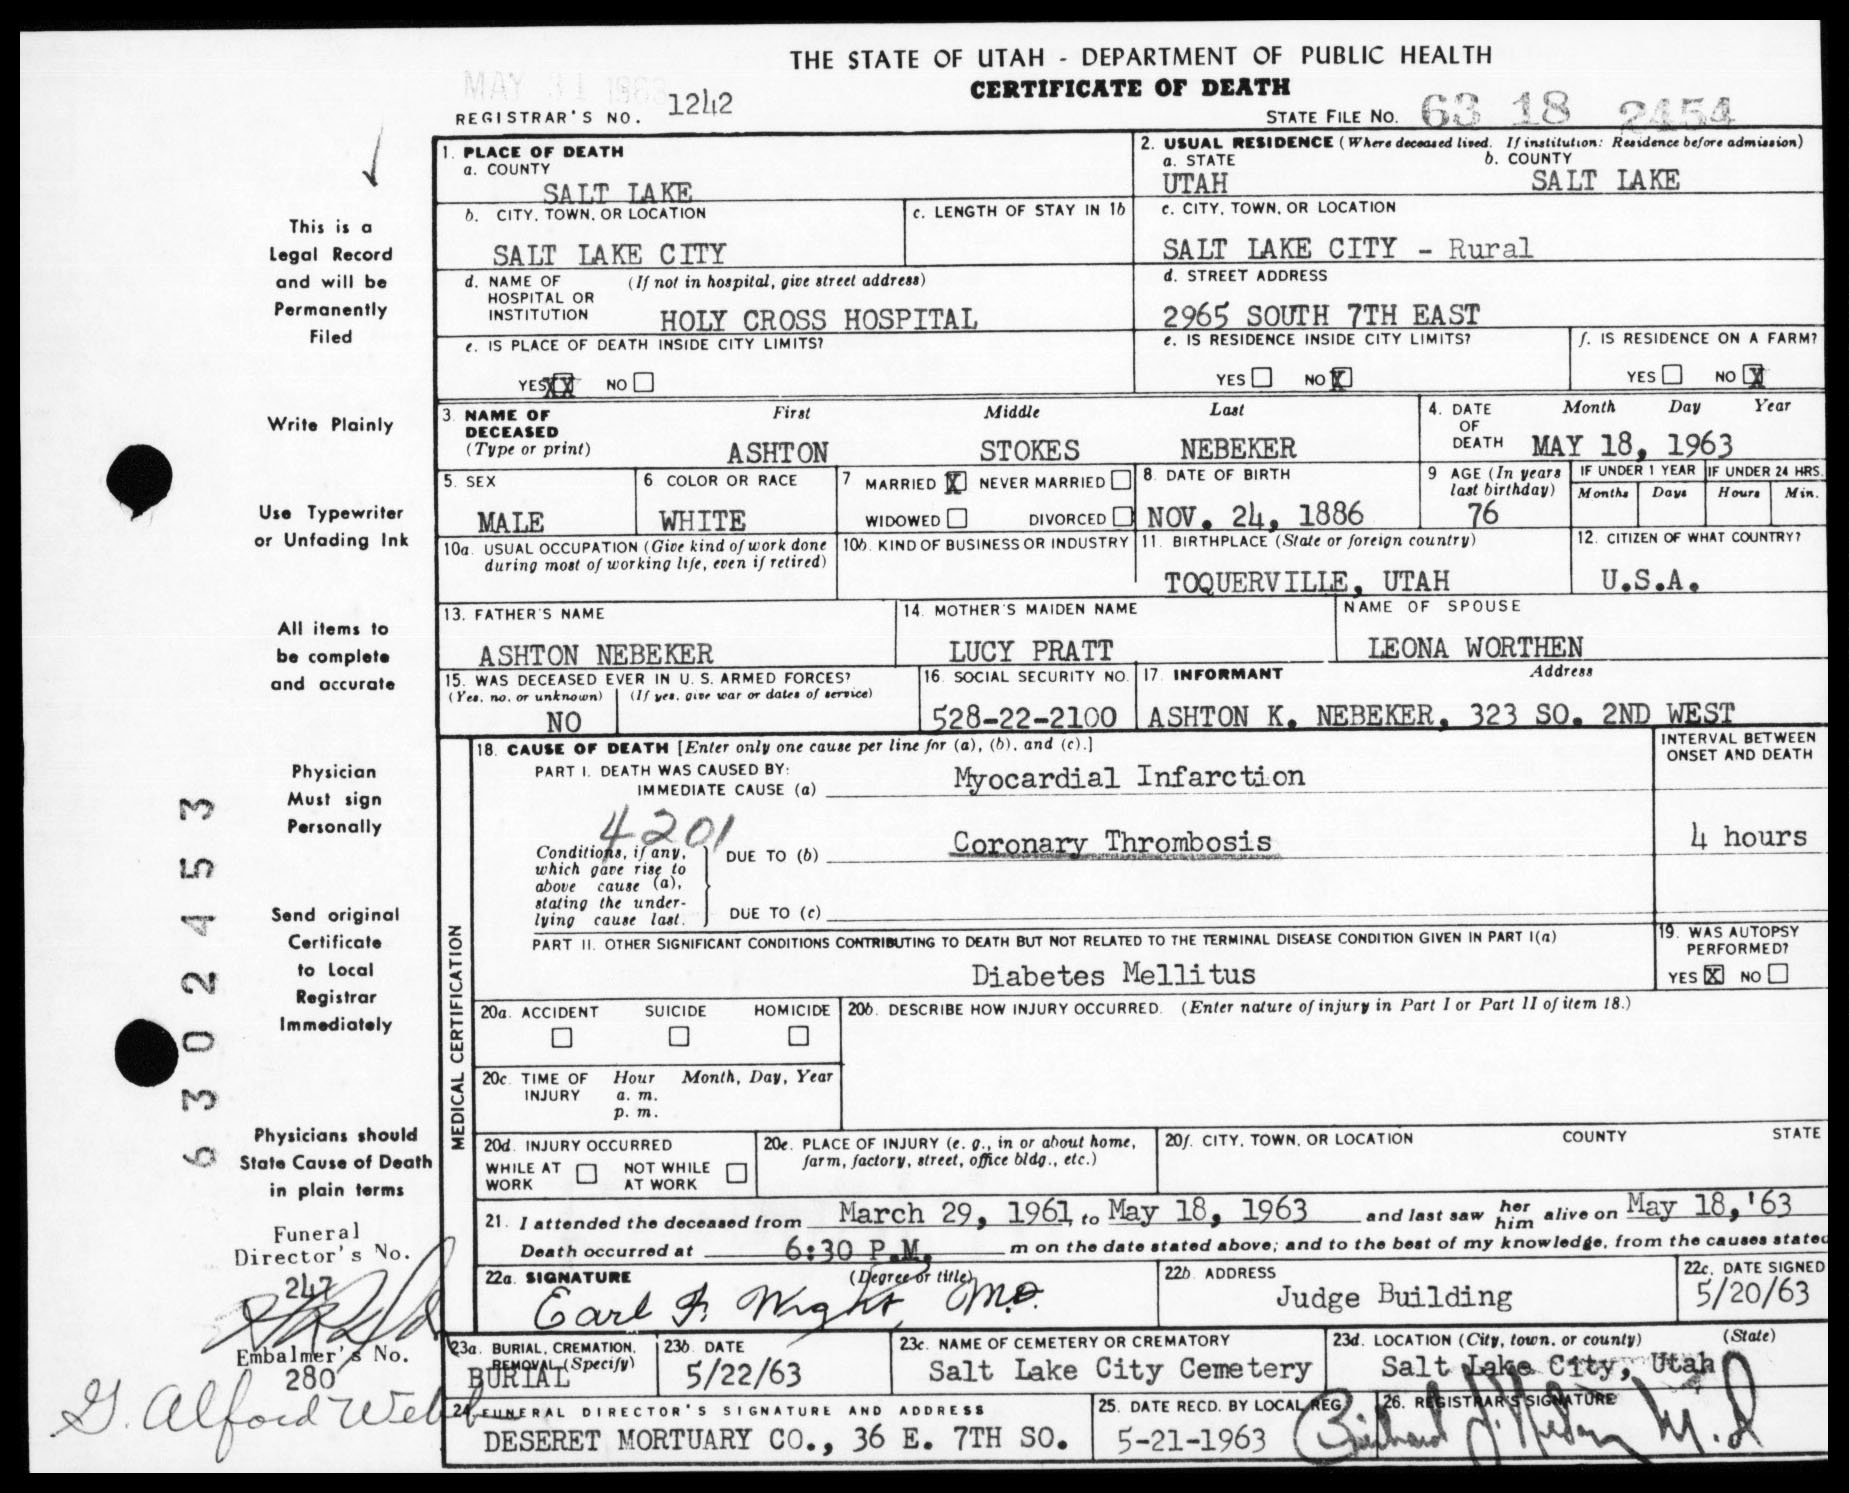 THE STATE OF UTAH - DEPARTMENT OF PUBLIC HEALTH
CERTIFICATE OF DEATH
MAY 31 1963
REGISTRAR'S NO. 1242
STATE FILE NO. 63 18 2454
This is a
Legal Record
and will be
Permanently
Filed
Write Plainly
Use Typewriter
or Unfading Ink
All items to
be complete
and accurate
Physician
Must sign
Personally
Send original
Certificate
to Local
Registrar
Immediately
Physicians should
State Cause of Death
in plain terms
Funeral
Director's No.
247
Embalmer's No.
280
G. Alford Webb
6302453
1. PLACE OF DEATH
a. COUNTY
SALT LAKE
2. USUAL RESIDENCE (Where deceased lived. If institution: Residence before admission)
a. STATE b. COUNTY
UTAH SALT LAKE
b. CITY, TOWN, OR LOCATION
SALT LAKE CITY
c. LENGTH OF STAY IN 1b
c. CITY, TOWN, OR LOCATION
SALT LAKE CITY - Rural
d. NAME OF HOSPITAL OR INSTITUTION (If not in hospital, give street address)
HOLY CROSS HOSPITAL
d. STREET ADDRESS
2965 SOUTH 7TH EAST
e. IS PLACE OF DEATH INSIDE CITY LIMITS?
YES XX NO
e. IS RESIDENCE INSIDE CITY LIMITS?
YES NO X
f. IS RESIDENCE ON A FARM?
YES NO X
3. NAME OF DECEASED (Type or print)
First Middle Last
ASHTON STOKES NEBEKER
4. DATE OF DEATH Month Day Year
MAY 18, 1963
5. SEX
MALE
6 COLOR OR RACE
WHITE
7 MARRIED X NEVER MARRIED
WIDOWED DIVORCED
8. DATE OF BIRTH
NOV. 24, 1886
9 AGE (In years last birthday)
76
IF UNDER 1 YEAR
Months Days
IF UNDER 24 HRS.
Hours Min.
10a. USUAL OCCUPATION (Give kind of work done during most of working life, even if retired)
10b. KIND OF BUSINESS OR INDUSTRY
11. BIRTHPLACE (State or foreign country)
TOQUERVILLE, UTAH
12. CITIZEN OF WHAT COUNTRY?
U.S.A.
13. FATHER'S NAME
ASHTON NEBEKER
14. MOTHER'S MAIDEN NAME
LUCY PRATT
NAME OF SPOUSE
LEONA WORTHEN
15. WAS DECEASED EVER IN U. S. ARMED FORCES?
(Yes, no, or unknown) (If yes, give war or dates of service)
NO
16. SOCIAL SECURITY NO.
528-22-2100
17. INFORMANT Address
ASHTON K. NEBEKER, 323 SO. 2ND WEST
MEDICAL CERTIFICATION
18. CAUSE OF DEATH [Enter only one cause per line for (a), (b), and (c).]
INTERVAL BETWEEN ONSET AND DEATH
PART I. DEATH WAS CAUSED BY:
IMMEDIATE CAUSE (a) Myocardial Infarction
4201
Conditions, if any, which gave rise to above cause (a), stating the underlying cause last.
DUE TO (b) Coronary Thrombosis
4 hours
DUE TO (c)
PART II. OTHER SIGNIFICANT CONDITIONS CONTRIBUTING TO DEATH BUT NOT RELATED TO THE TERMINAL DISEASE CONDITION GIVEN IN PART I(a)
Diabetes Mellitus
19. WAS AUTOPSY PERFORMED?
YES X NO
20a. ACCIDENT SUICIDE HOMICIDE
20b. DESCRIBE HOW INJURY OCCURRED. (Enter nature of injury in Part I or Part II of item 18.)
20c. TIME OF INJURY Hour Month, Day, Year
a. m.
p. m.
20d. INJURY OCCURRED
WHILE AT WORK NOT WHILE AT WORK
20e. PLACE OF INJURY (e. g., in or about home, farm, factory, street, office bldg., etc.)
20f. CITY, TOWN, OR LOCATION COUNTY STATE
21. I attended the deceased from March 29, 1961, to May 18, 1963 and last saw her him alive on May 18,'63
Death occurred at 6:30 P.M. m on the date stated above; and to the best of my knowledge, from the causes stated
22a. SIGNATURE (Degree or title)
Earl F. Wight, M.D.
22b. ADDRESS
Judge Building
22c. DATE SIGNED
5/20/63
23a. BURIAL, CREMATION, REMOVAL (Specify)
BURIAL
23b. DATE
5/22/63
23c. NAME OF CEMETERY OR CREMATORY
Salt Lake City Cemetery
23d. LOCATION (City, town, or county) (State)
Salt Lake City, Utah
24. FUNERAL DIRECTOR'S SIGNATURE AND ADDRESS
DESERET MORTUARY CO., 36 E. 7TH SO.
25. DATE RECD. BY LOCAL REG.
5-21-1963
26. REGISTRAR'S SIGNATURE
M.D